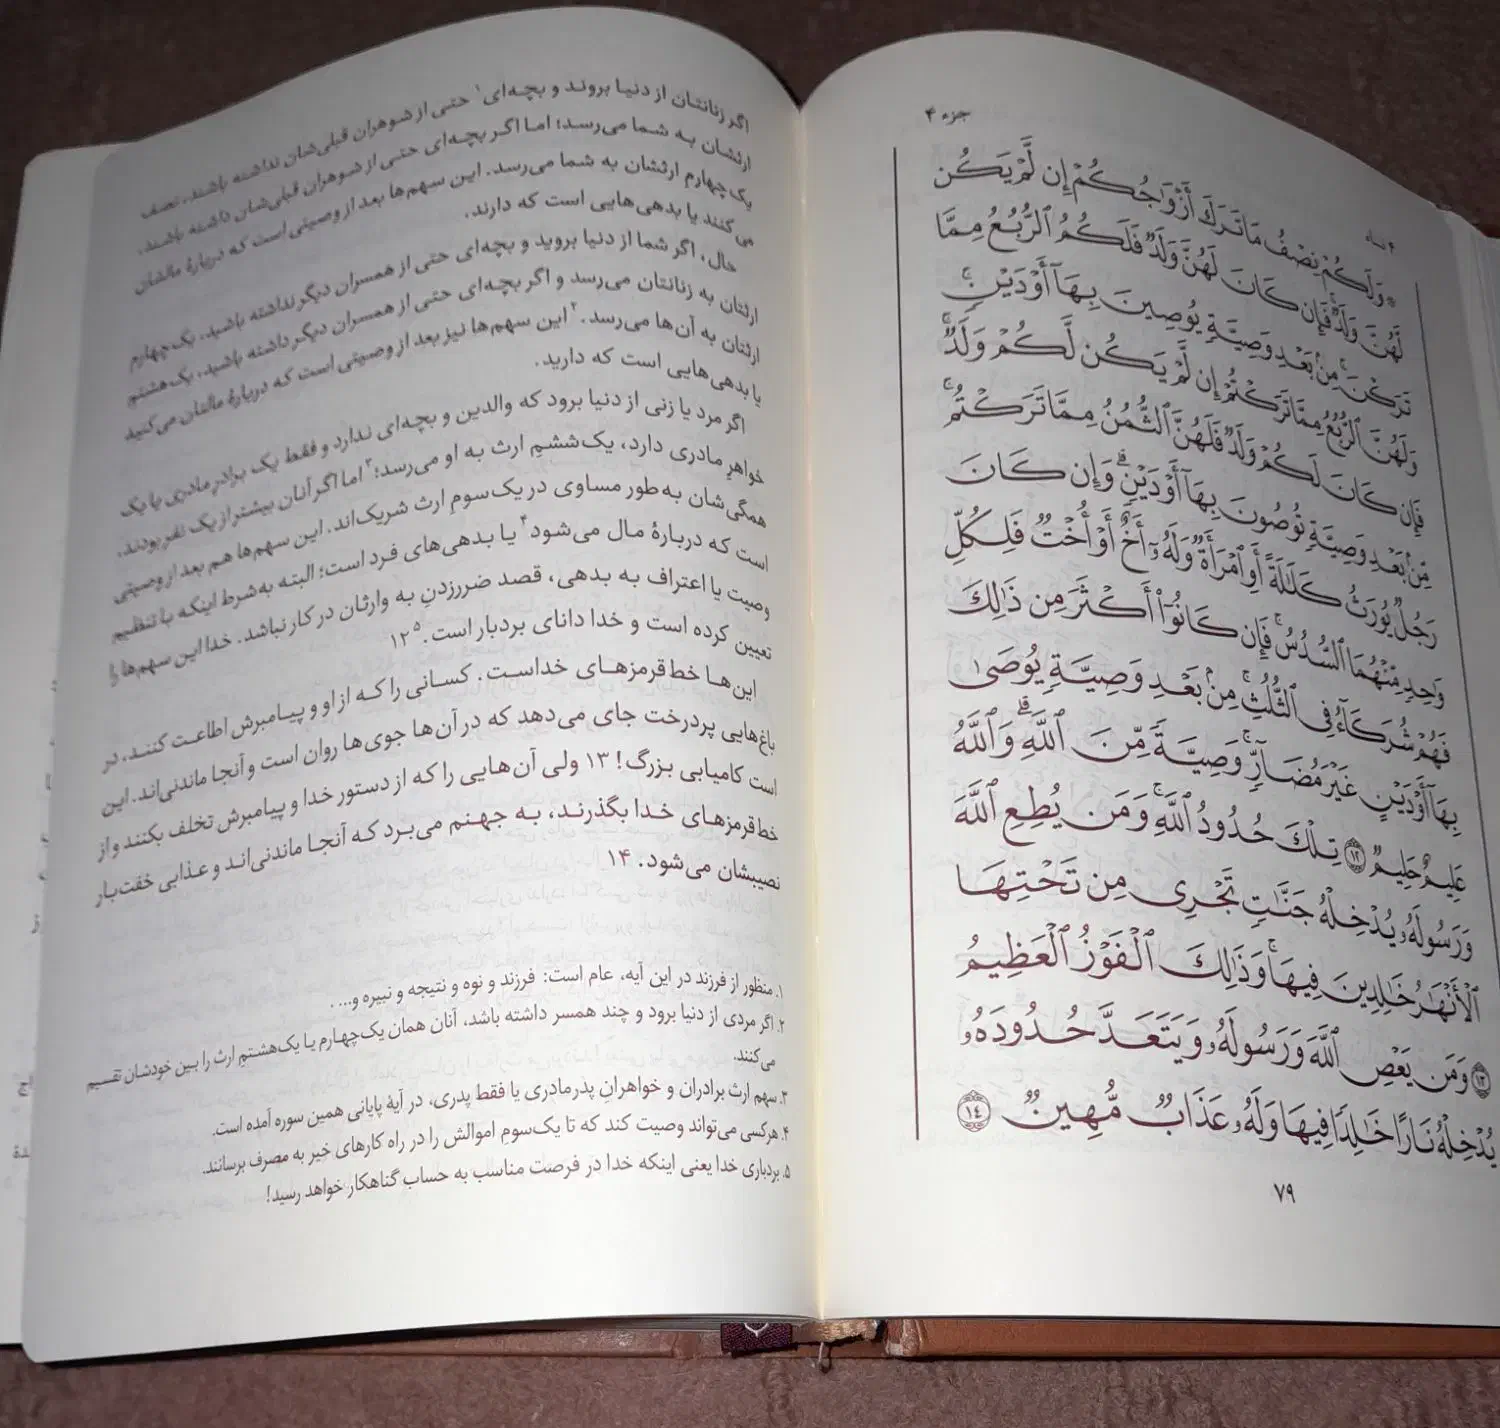 جزء ۴
۴ نساء
۞ وَلَكُمْ نِصْفُ مَا تَرَكَ أَزْوَٰجُكُمْ إِن لَّمْ يَكُن
لَّهُنَّ وَلَدٌ ۚ فَإِن كَانَ لَهُنَّ وَلَدٌ فَلَكُمُ ٱلرُّبُعُ مِمَّا
تَرَكْنَ ۚ مِنۢ بَعْدِ وَصِيَّةٍ يُوصِينَ بِهَآ أَوْ دَيْنٍ ۚ
وَلَهُنَّ ٱلرُّبُعُ مِمَّا تَرَكْتُمْ إِن لَّمْ يَكُن لَّكُمْ وَلَدٌ ۚ
فَإِن كَانَ لَكُمْ وَلَدٌ فَلَهُنَّ ٱلثُّمُنُ مِمَّا تَرَكْتُم ۚ
مِّنۢ بَعْدِ وَصِيَّةٍ تُوصُونَ بِهَآ أَوْ دَيْنٍ ۗ وَإِن كَانَ
رَجُلٌ يُورَثُ كَلَٰلَةً أَوِ ٱمْرَأَةٌ وَلَهُۥٓ أَخٌ أَوْ أُخْتٌ فَلِكُلِّ
وَٰحِدٍ مِّنْهُمَا ٱلسُّدُسُ ۚ فَإِن كَانُوٓا۟ أَكْثَرَ مِن ذَٰلِكَ
فَهُمْ شُرَكَآءُ فِى ٱلثُّلُثِ ۚ مِنۢ بَعْدِ وَصِيَّةٍ يُوصَىٰ
بِهَآ أَوْ دَيْنٍ غَيْرَ مُضَآرٍّ ۚ وَصِيَّةً مِّنَ ٱللَّهِ ۗ وَٱللَّهُ
عَلِيمٌ حَلِيمٌ ١٢ تِلْكَ حُدُودُ ٱللَّهِ ۚ وَمَن يُطِعِ ٱللَّهَ
وَرَسُولَهُۥ يُدْخِلْهُ جَنَّٰتٍ تَجْرِى مِن تَحْتِهَا
ٱلْأَنْهَٰرُ خَٰلِدِينَ فِيهَا ۚ وَذَٰلِكَ ٱلْفَوْزُ ٱلْعَظِيمُ
١٣ وَمَن يَعْصِ ٱللَّهَ وَرَسُولَهُۥ وَيَتَعَدَّ حُدُودَهُۥ
يُدْخِلْهُ نَارًا خَٰلِدًا فِيهَا وَلَهُۥ عَذَابٌ مُّهِينٌ ١٤
۷۹
اگر زنانتان از دنیا بروند و بچه‌ای۱ حتی از شوهران قبلی‌شان نداشته باشند، نصف
ارثشان به شما می‌رسد؛ اما اگر بچه‌ای حتی از شوهران قبلی‌شان داشته باشند،
یک‌چهارم ارثشان به شما می‌رسد. این سهم‌ها بعد از وصیتی است که دربارهٔ مالشان
می‌کنند یا بدهی‌هایی است که دارند.
حال، اگر شما از دنیا بروید و بچه‌ای حتی از همسران دیگر نداشته باشید، یک‌چهارم
ارثتان به زنانتان می‌رسد و اگر بچه‌ای حتی از همسران دیگر داشته باشید، یک‌هشتم
ارثتان به آن‌ها می‌رسد.۲ این سهم‌ها نیز بعد از وصیتی است که دربارهٔ مالتان می‌کنید
یا بدهی‌هایی است که دارید.
اگر مرد یا زنی از دنیا برود که والدین و بچه‌ای ندارد و فقط یک برادرِ مادری یا یک
خواهرِ مادری دارد، یک‌ششمِ ارث به او می‌رسد؛۳ اما اگر آنان بیشتر از یک نفر بودند،
همگی‌شان به‌طور مساوی در یک‌سوم ارث شریک‌اند. این سهم‌ها هم بعد از وصیتی
است که دربارهٔ مال می‌شود۴ یا بدهی‌های فرد است؛ البته به‌شرط اینکه با تنظیم
وصیت یا اعتراف به بدهی، قصد ضررزدن به وارثان در کار نباشد. خدا این سهم‌ها را
تعیین کرده است و خدا دانای بردبار است.۵ ۱۲
این‌ها خط‌قرمزهای خداست. کسانی را که از او و پیامبرش اطاعت کنند، در
باغ‌هایی پردرخت جای می‌دهد که در آن‌ها جوی‌ها روان است و آنجا ماندنی‌اند. این
است کامیابی بزرگ! ۱۳ ولی آن‌هایی را که از دستور خدا و پیامبرش تخلف بکنند و از
خط‌قرمزهای خدا بگذرند، به جهنم می‌برد که آنجا ماندنی‌اند و عذابی خفت‌بار
نصیبشان می‌شود. ۱۴
۱. منظور از فرزند در این آیه، عام است: فرزند و نوه و نتیجه و نبیره و... .
۲. اگر مردی از دنیا برود و چند همسر داشته باشد، آنان همان یک‌چهارم یا یک‌هشتمِ ارث را بین خودشان تقسیم
می‌کنند.
۳. سهم ارث برادران و خواهرانِ پدرمادری یا فقط پدری، در آیهٔ پایانی همین سوره آمده است.
۴. هرکسی می‌تواند وصیت کند که تا یک‌سوم اموالش را در راه کارهای خیر به مصرف برسانند.
۵. بردباری خدا یعنی اینکه خدا در فرصت مناسب به حساب گناهکار خواهد رسید!